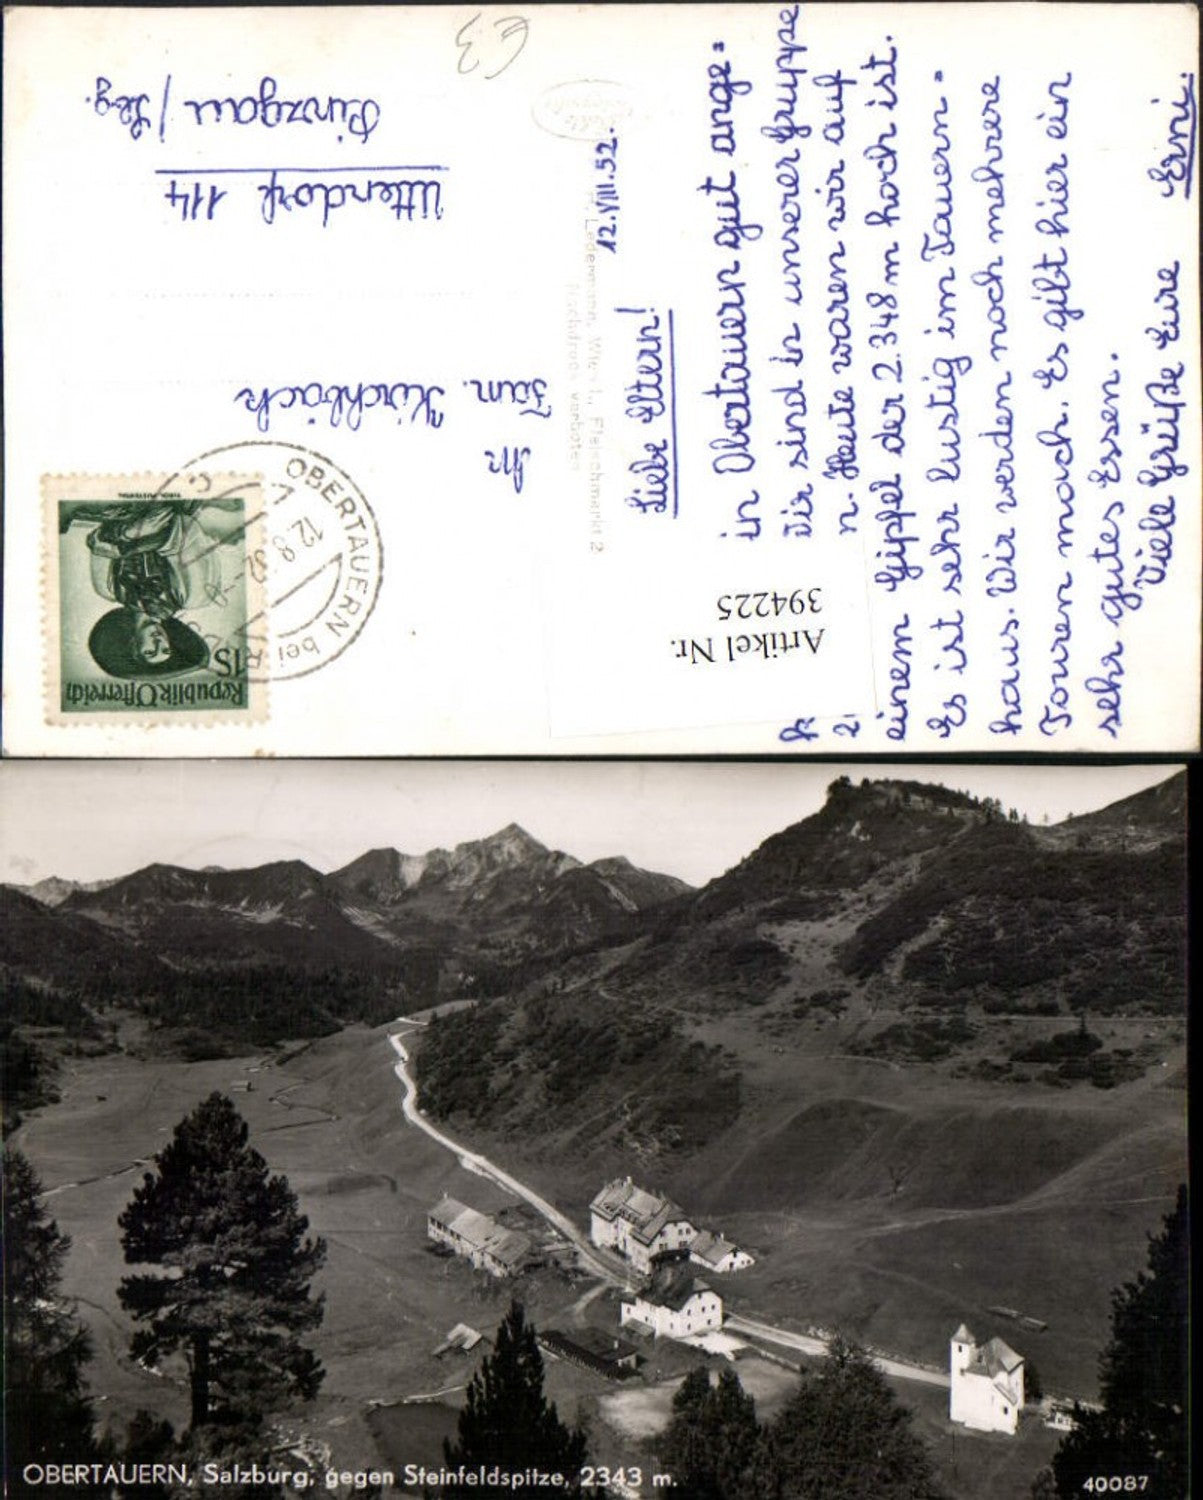 €3
12.VIII.52.
Liebe Eltern!
in Obertauern gut ange=
Wir sind in unserer Gruppe
n. Heute waren wir auf
einem Gipfel der 2.348 m hoch ist.
Es ist sehr lustig im Tauern=
haus. Wir werden noch mehrere
Touren mach. Es gibt hier ein
sehr gutes Essen.
Viele Grüße Eure Erni.
Ledermann, Wien I., Fleischmarkt 2
Nachdruck verboten
Artikel Nr.
394225
Republik Österreich
1S
OBERTAUERN bei
12.8.52
An
Fam. Kirchbäck
Uttendorf 114
Pinzgau / Sbg.
OBERTAUERN, Salzburg, gegen Steinfeldspitze, 2343 m.
40087